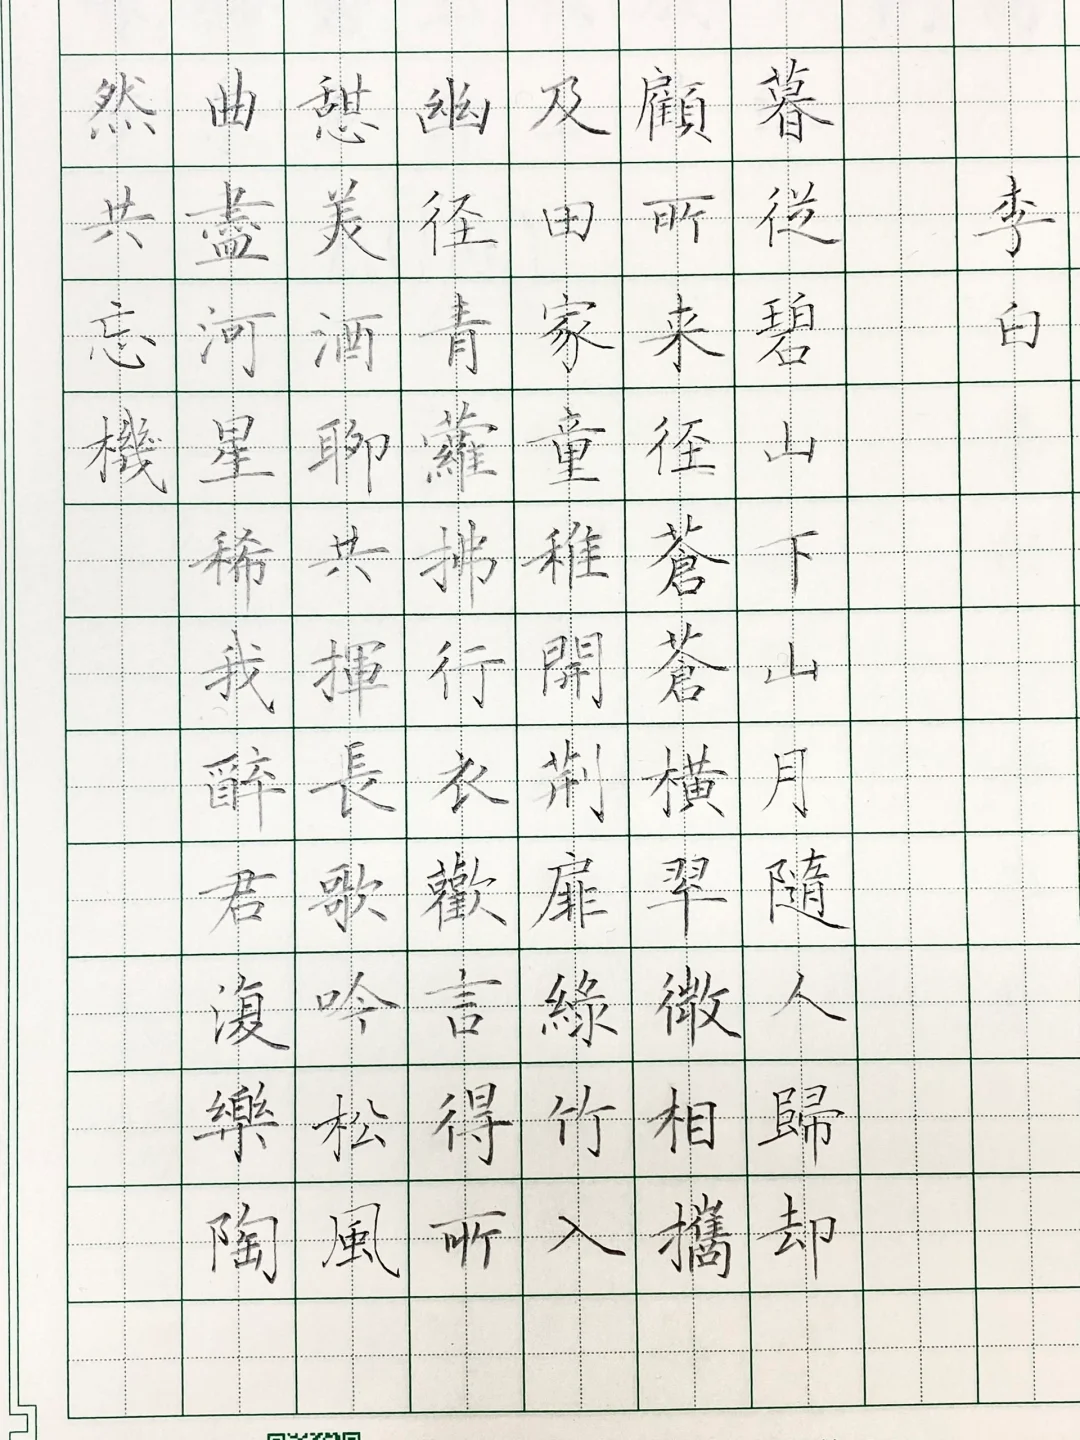 李白
暮従碧山下山月隨人歸却
顧所来径蒼蒼橫翆微相攜
及田家童稚開荆扉綠竹入
幽径青蘿拂行衣歡言得所
憇美酒聊共揮長歌吟松風
曲盡河星稀我醉君復樂陶
然共忘機